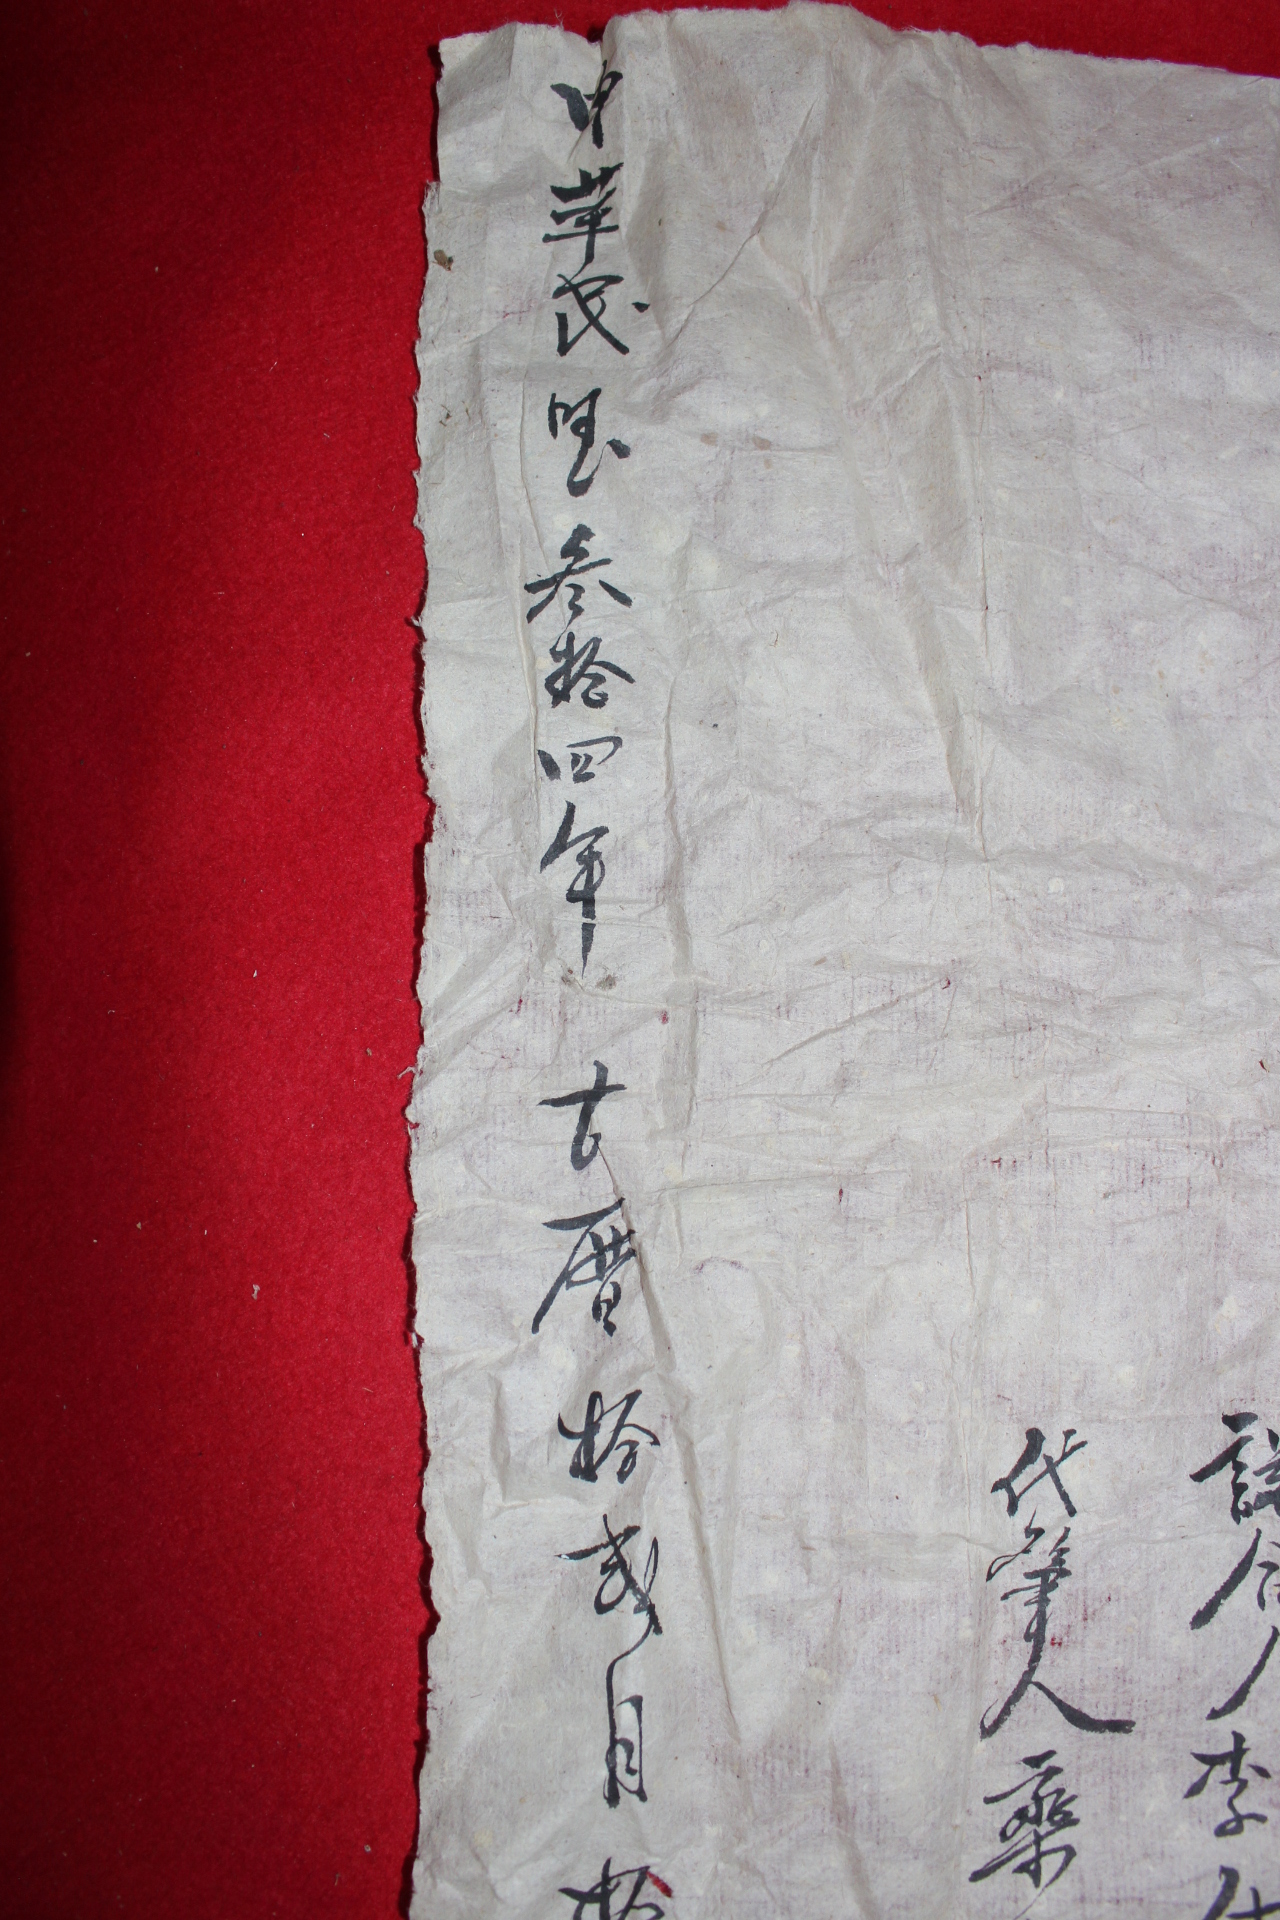 說合人李
代筆人
中華民國叁拾四年 古曆拾貳月拾